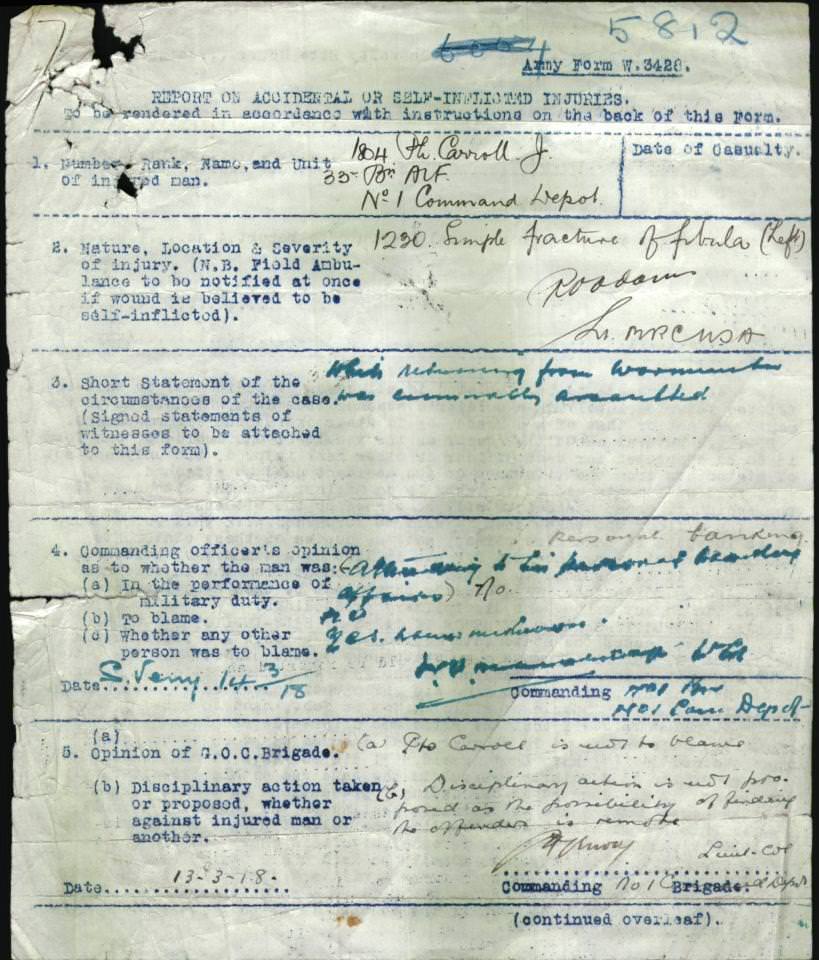 5812
Army Form W.3428.
REPORT ON ACCIDENTAL OR SELF-INFLICTED INJURIES.
To be rendered in accordance with instructions on the back of this Form.
1. Number, Rank, Name, and Unit
of injured man.
1804 Pte. Carroll J.
33rd Bn AIF.
No 1 Command Depot.
Date of Casualty.
2. Nature, Location & Severity
of injury. (N.B. Field Ambu-
lance to be notified at once
if wound is believed to be
self-inflicted).
1230. Simple fracture of fibula (Left)
Lt. MRCUSA
3. Short Statement of the
circumstances of the case.
(Signed statements of
witnesses to be attached
to this form).
While returning from Warminster
was criminally assaulted
personal banking
4. Commanding officer's opinion
as to whether the man was:
(a) In the performance of
military duty.
(b) To blame.
(c) Whether any other
person was to blame.
(Attending to his personal banking
affairs) No.
No
Yes. unknown.
Date S. Veny 14 3/18
Commanding No 1
No 1 Com Depot
(a)
5. Opinion of G.O.C. Brigade.
(a) Pte Carroll is not to blame
(b) Disciplinary action taken
or proposed, whether
against injured man or
another.
(b) Disciplinary action is not pro-
posed as the possibility of finding
the offenders is remote
Lieut-Col
Date 13-3-18.
Commanding No 1 Command Depot Brigade.
(continued overleaf).